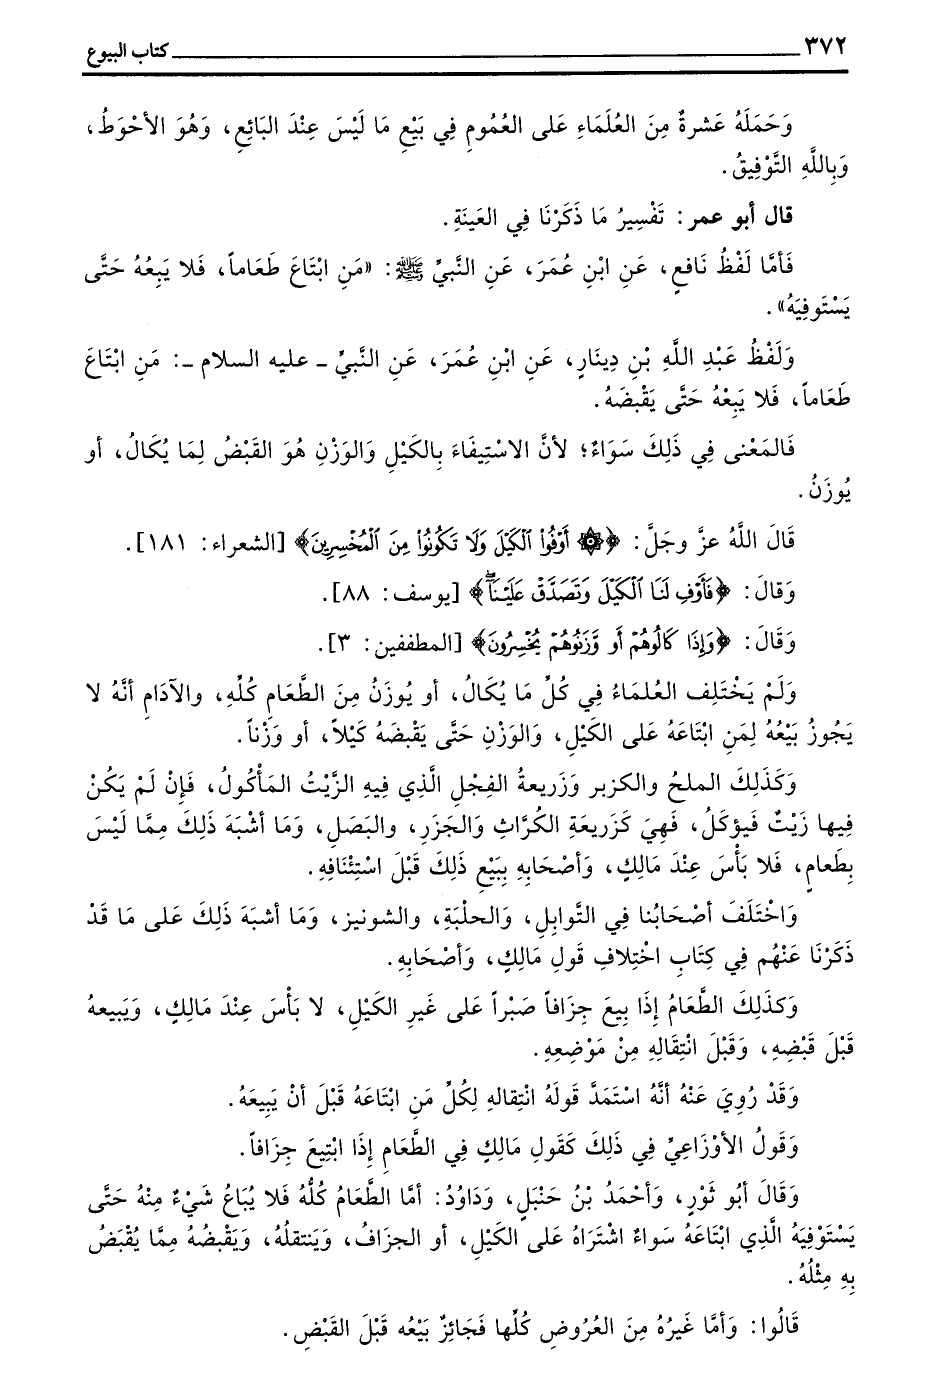 ٣٧٢ كتاب البيوع
وَحَمَلَهُ عَشرةٌ مِنَ العُلَمَاءِ عَلى العُمُومِ فِي بَيْعِ مَا لَيْسَ عِنْدَ البَائِعِ، وَهُوَ الأحْوَطُ،
وَبِاللَّهِ التَّوْفِيقُ.
قال أبو عمر: تَفْسِيرُ مَا ذَكَرْنَا فِي العَينَةِ.
فَأمَّا لَفْظُ نَافعٍ، عَنِ ابْنِ عُمَرَ، عَنِ النَّبيِّ ﷺ: «مَنِ ابْتَاعَ طَعَاماً، فَلا يَبِعُهُ حَتَّى
يَسْتَوفِيَهُ».
وَلَفْظُ عَبْدِ اللَّهِ بْنِ دِينَارٍ، عَنِ ابْنِ عُمَرَ، عَنِ النَّبيِّ ـ عليه السلام ـ: مَنِ ابْتَاعَ
طَعَاماً، فَلا يَبِعْهُ حَتَّى يَقْبضَهُ.
فَالمَعْنى فِي ذَلِكَ سَوَاءٌ؛ لأنَّ الاسْتِيفَاءَ بِالكَيْلِ وَالوَزْنِ هُوَ القَبْضُ لِمَا يُكَالُ، أو
يُوزَنُ.
قَالَ اللَّهُ عزَّ وجَلَّ: ﴿۞ أَوْفُوا۟ ٱلْكَيْلَ وَلَا تَكُونُوا۟ مِنَ ٱلْمُخْسِرِينَ﴾ [الشعراء: ١٨١].
وَقالَ: ﴿فَأَوْفِ لَنَا ٱلْكَيْلَ وَتَصَدَّقْ عَلَيْنَآ ۖ﴾ [يوسف: ٨٨].
وَقَالَ: ﴿وَإِذَا كَالُوهُمْ أَو وَّزَنُوهُمْ يُخْسِرُونَ﴾ [المطففين: ٣].
وَلَمْ يَخْتَلِفِ العُلمَاءُ فِي كُلِّ مَا يُكَالُ، أو يُوزَنُ مِنَ الطَّعَامِ كُلِّهِ، والآدَامِ أنَّهُ لا
يَجُوزُ بَيْعُهُ لِمَنِ ابْتَاعَهُ عَلى الكَيْلِ، وَالوَزْنِ حَتَّى يَقْبضَهُ كَيْلاً، أو وَزْناً.
وَكَذَلِكَ الملحُ والكزبر وَزَريعةُ الفِجْلِ الَّذِي فِيهِ الزَّيْتُ المَأْكُولُ، فَإنْ لَمْ يَكُنْ
فِيها زَيْتٌ فَيؤكَلُ، فَهِيَ كَزَريعَةِ الكُرَّاثِ وَالجَزَرِ، والبَصَلِ، وَمَا أشْبَهَ ذَلِكَ مِمَّا لَيْسَ
بِطَعامٍ، فَلا بَأْسَ عِنْدَ مَالِكٍ، وَأصْحَابِهِ بِبَيْعِ ذَلِكَ قَبْلَ اسْتِئْنَافِهِ.
وَاخْتَلَفَ أصْحَابُنا فِي التَّوابِلِ، وَالحلْبَةِ، والشونيز، وَمَا أشبَهَ ذَلِكَ عَلى مَا قَدْ
ذَكَرْنَا عَنْهُم فِي كِتَابِ اخْتِلافِ قَولِ مَالِكٍ، وَأصْحَابِهِ.
وَكذَلِكَ الطَّعَامُ إذَا بِيعَ جِزَافاً صَبْراً عَلى غَيرِ الكَيْلِ، لا بَأْسَ عِنْدَ مَالِكٍ، وَيَبيعهُ
قَبْلَ قَبْضِهِ، وَقَبْلَ انْتِقَالِهِ مِنْ مَوْضِعِهِ.
وَقَدْ رُوِيَ عَنْهُ أنَّهُ اسْتَمَدَّ قَولَهُ انْتِقالهِ لِكُلِّ مَنِ ابْتَاعَهُ قَبْلَ أنْ يَبِيعَهُ.
وَقَولُ الأوْزَاعِيِّ فِي ذَلِكَ كَقَولِ مَالِكٍ فِي الطَّعَامِ إذَا ابْتِيعَ جِزَافاً.
وَقَالَ أبُو ثَوْرٍ، وَأحْمَدُ بْنُ حَنْبَلٍ، وَدَاوُدُ: أمَّا الطَّعَامُ كُلُّهُ فَلا يُبَاعُ شَيْءٌ مِنْهُ حَتَّى
يَسْتَوْفِيَهُ الَّذِي ابْتَاعَهُ سَواءٌ اشْتَرَاهُ عَلى الكَيْلِ، أو الجزَافُ، وَيَنتقلُهُ، وَيَقْبضُهُ مِمَّا يُقْبَضُ
بِهِ مِثْلُهُ.
قَالُوا: وَأمَّا غَيرُهُ مِنَ العُرُوضِ كُلِّها فَجَائِزٌ بَيْعُه قَبْلَ القَبْضِ.